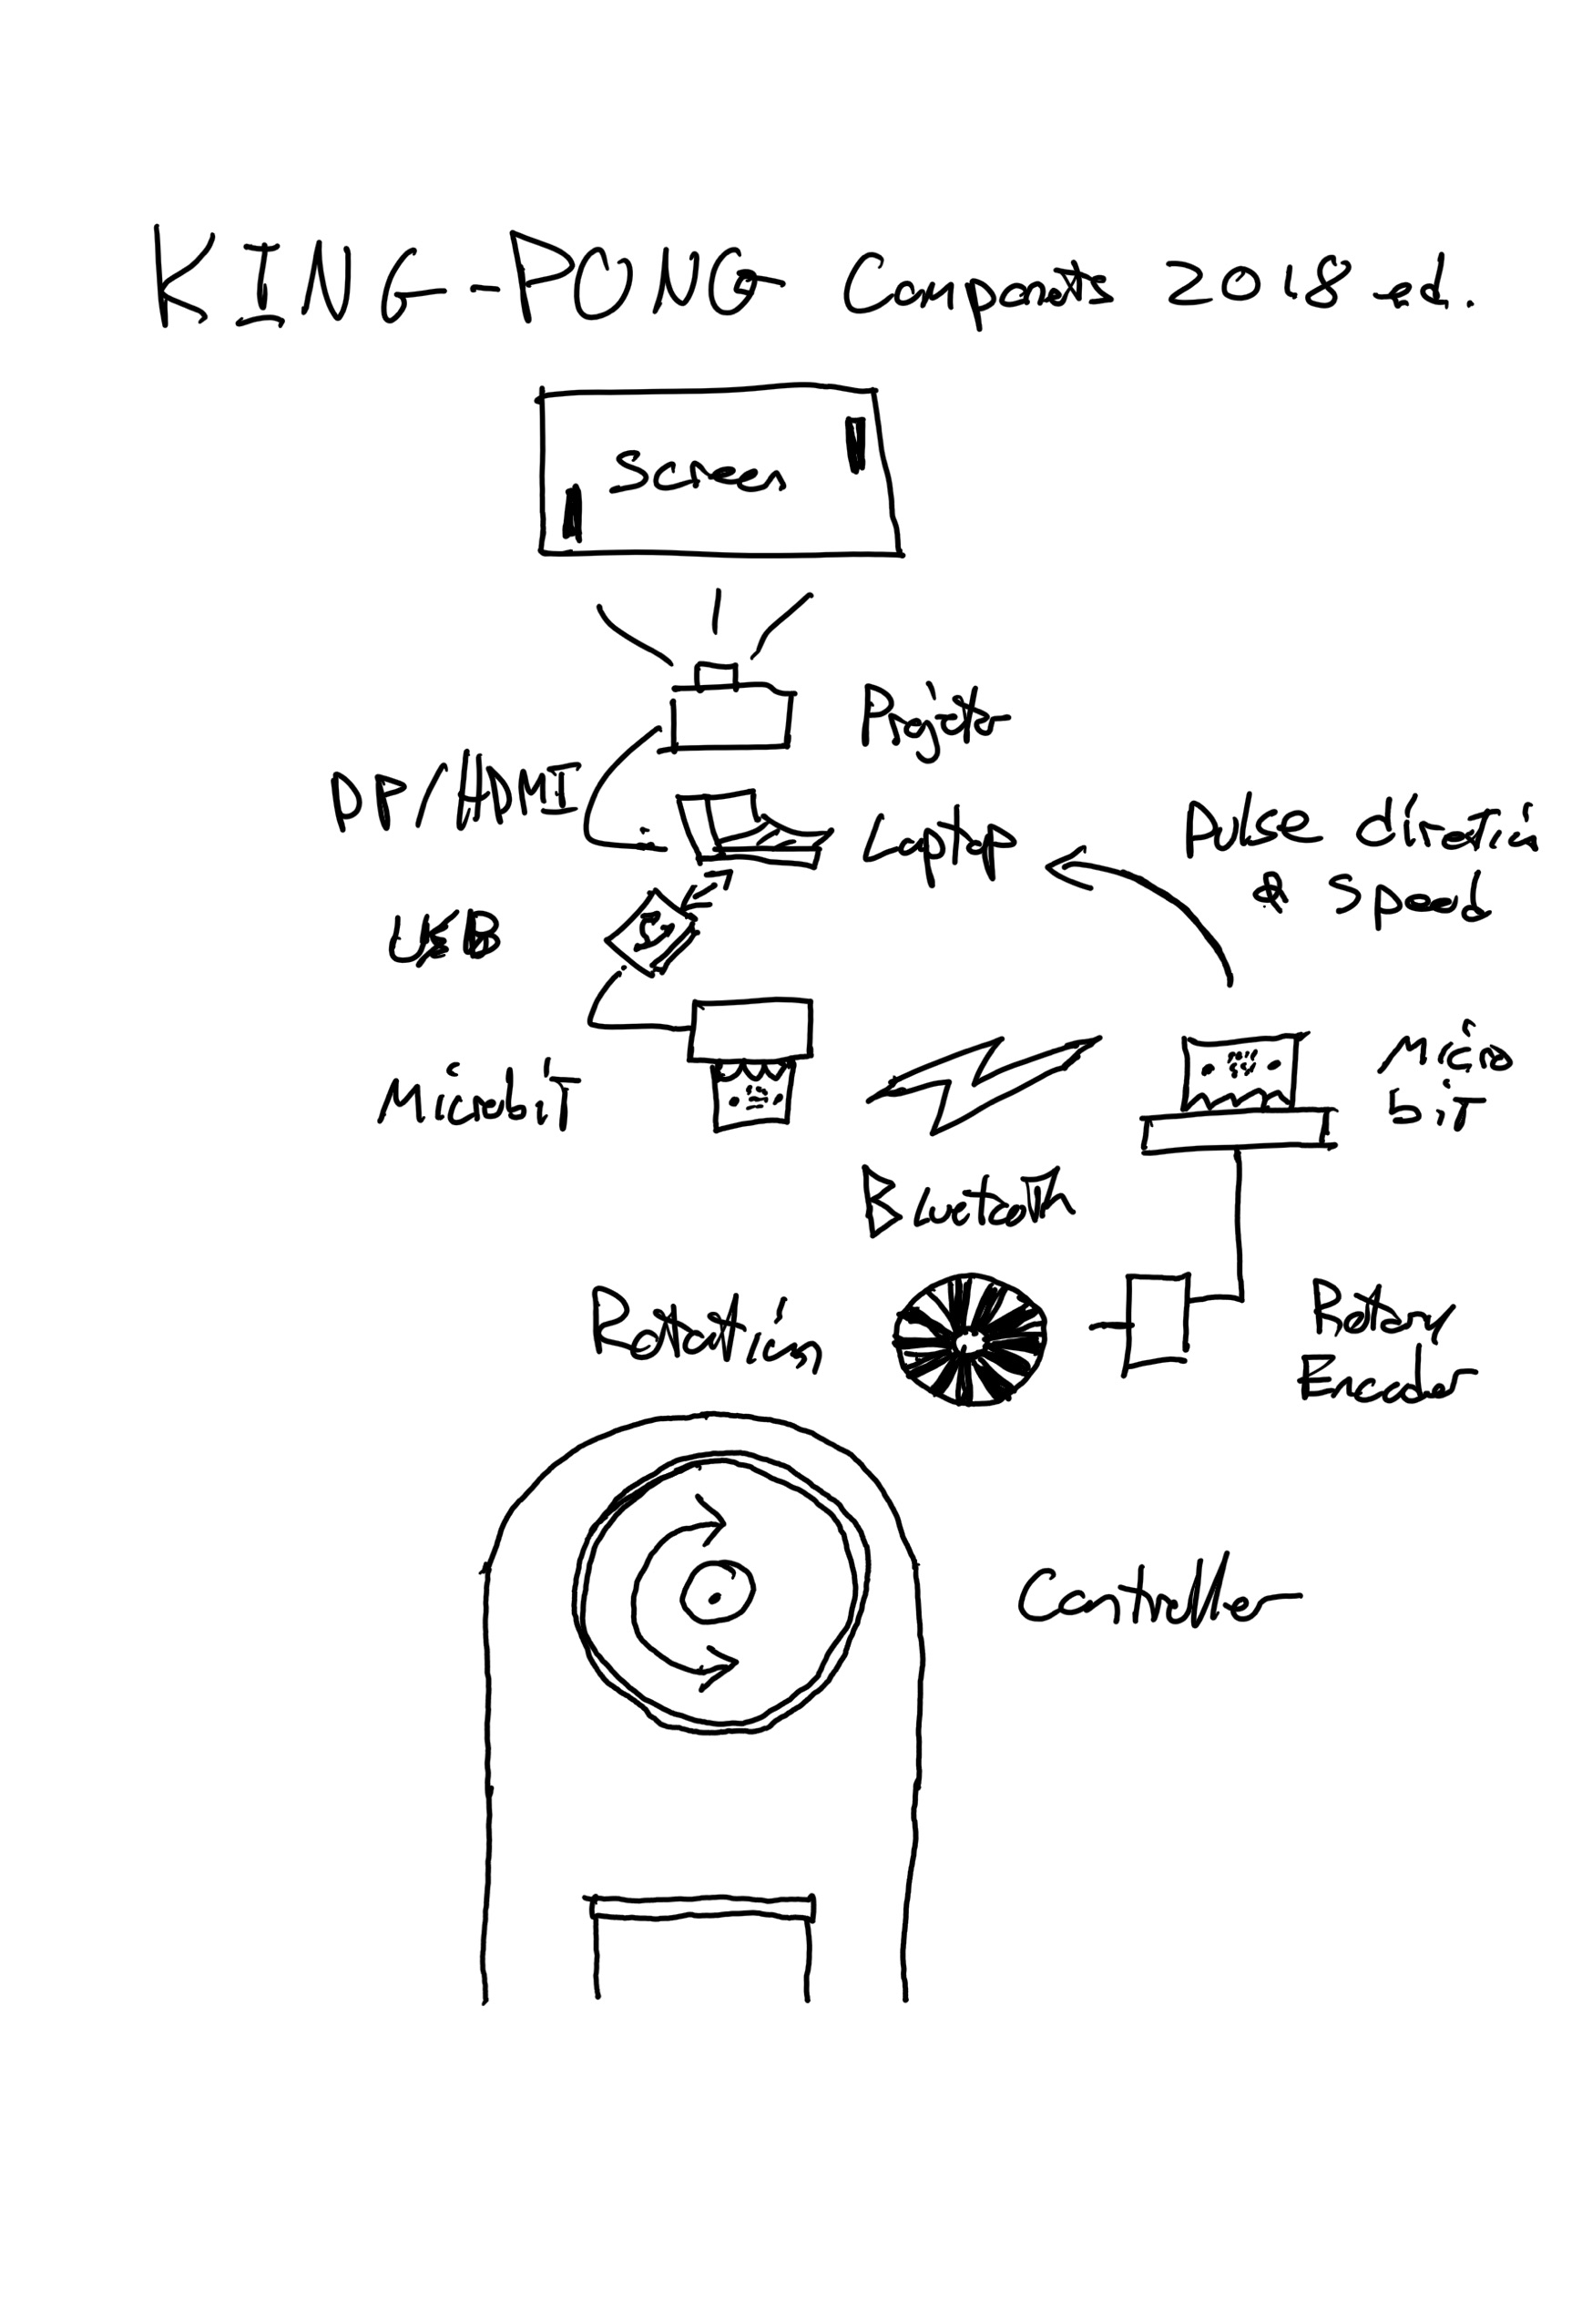 KING-PONG Components 2018 ed.
Screen
Projector
DP/HDMI
Laptop
Pulse direction
& Speed
USB
Microbit
Micro
bit
Bluetooth
Rotation
Rotary
Encoder
Controller